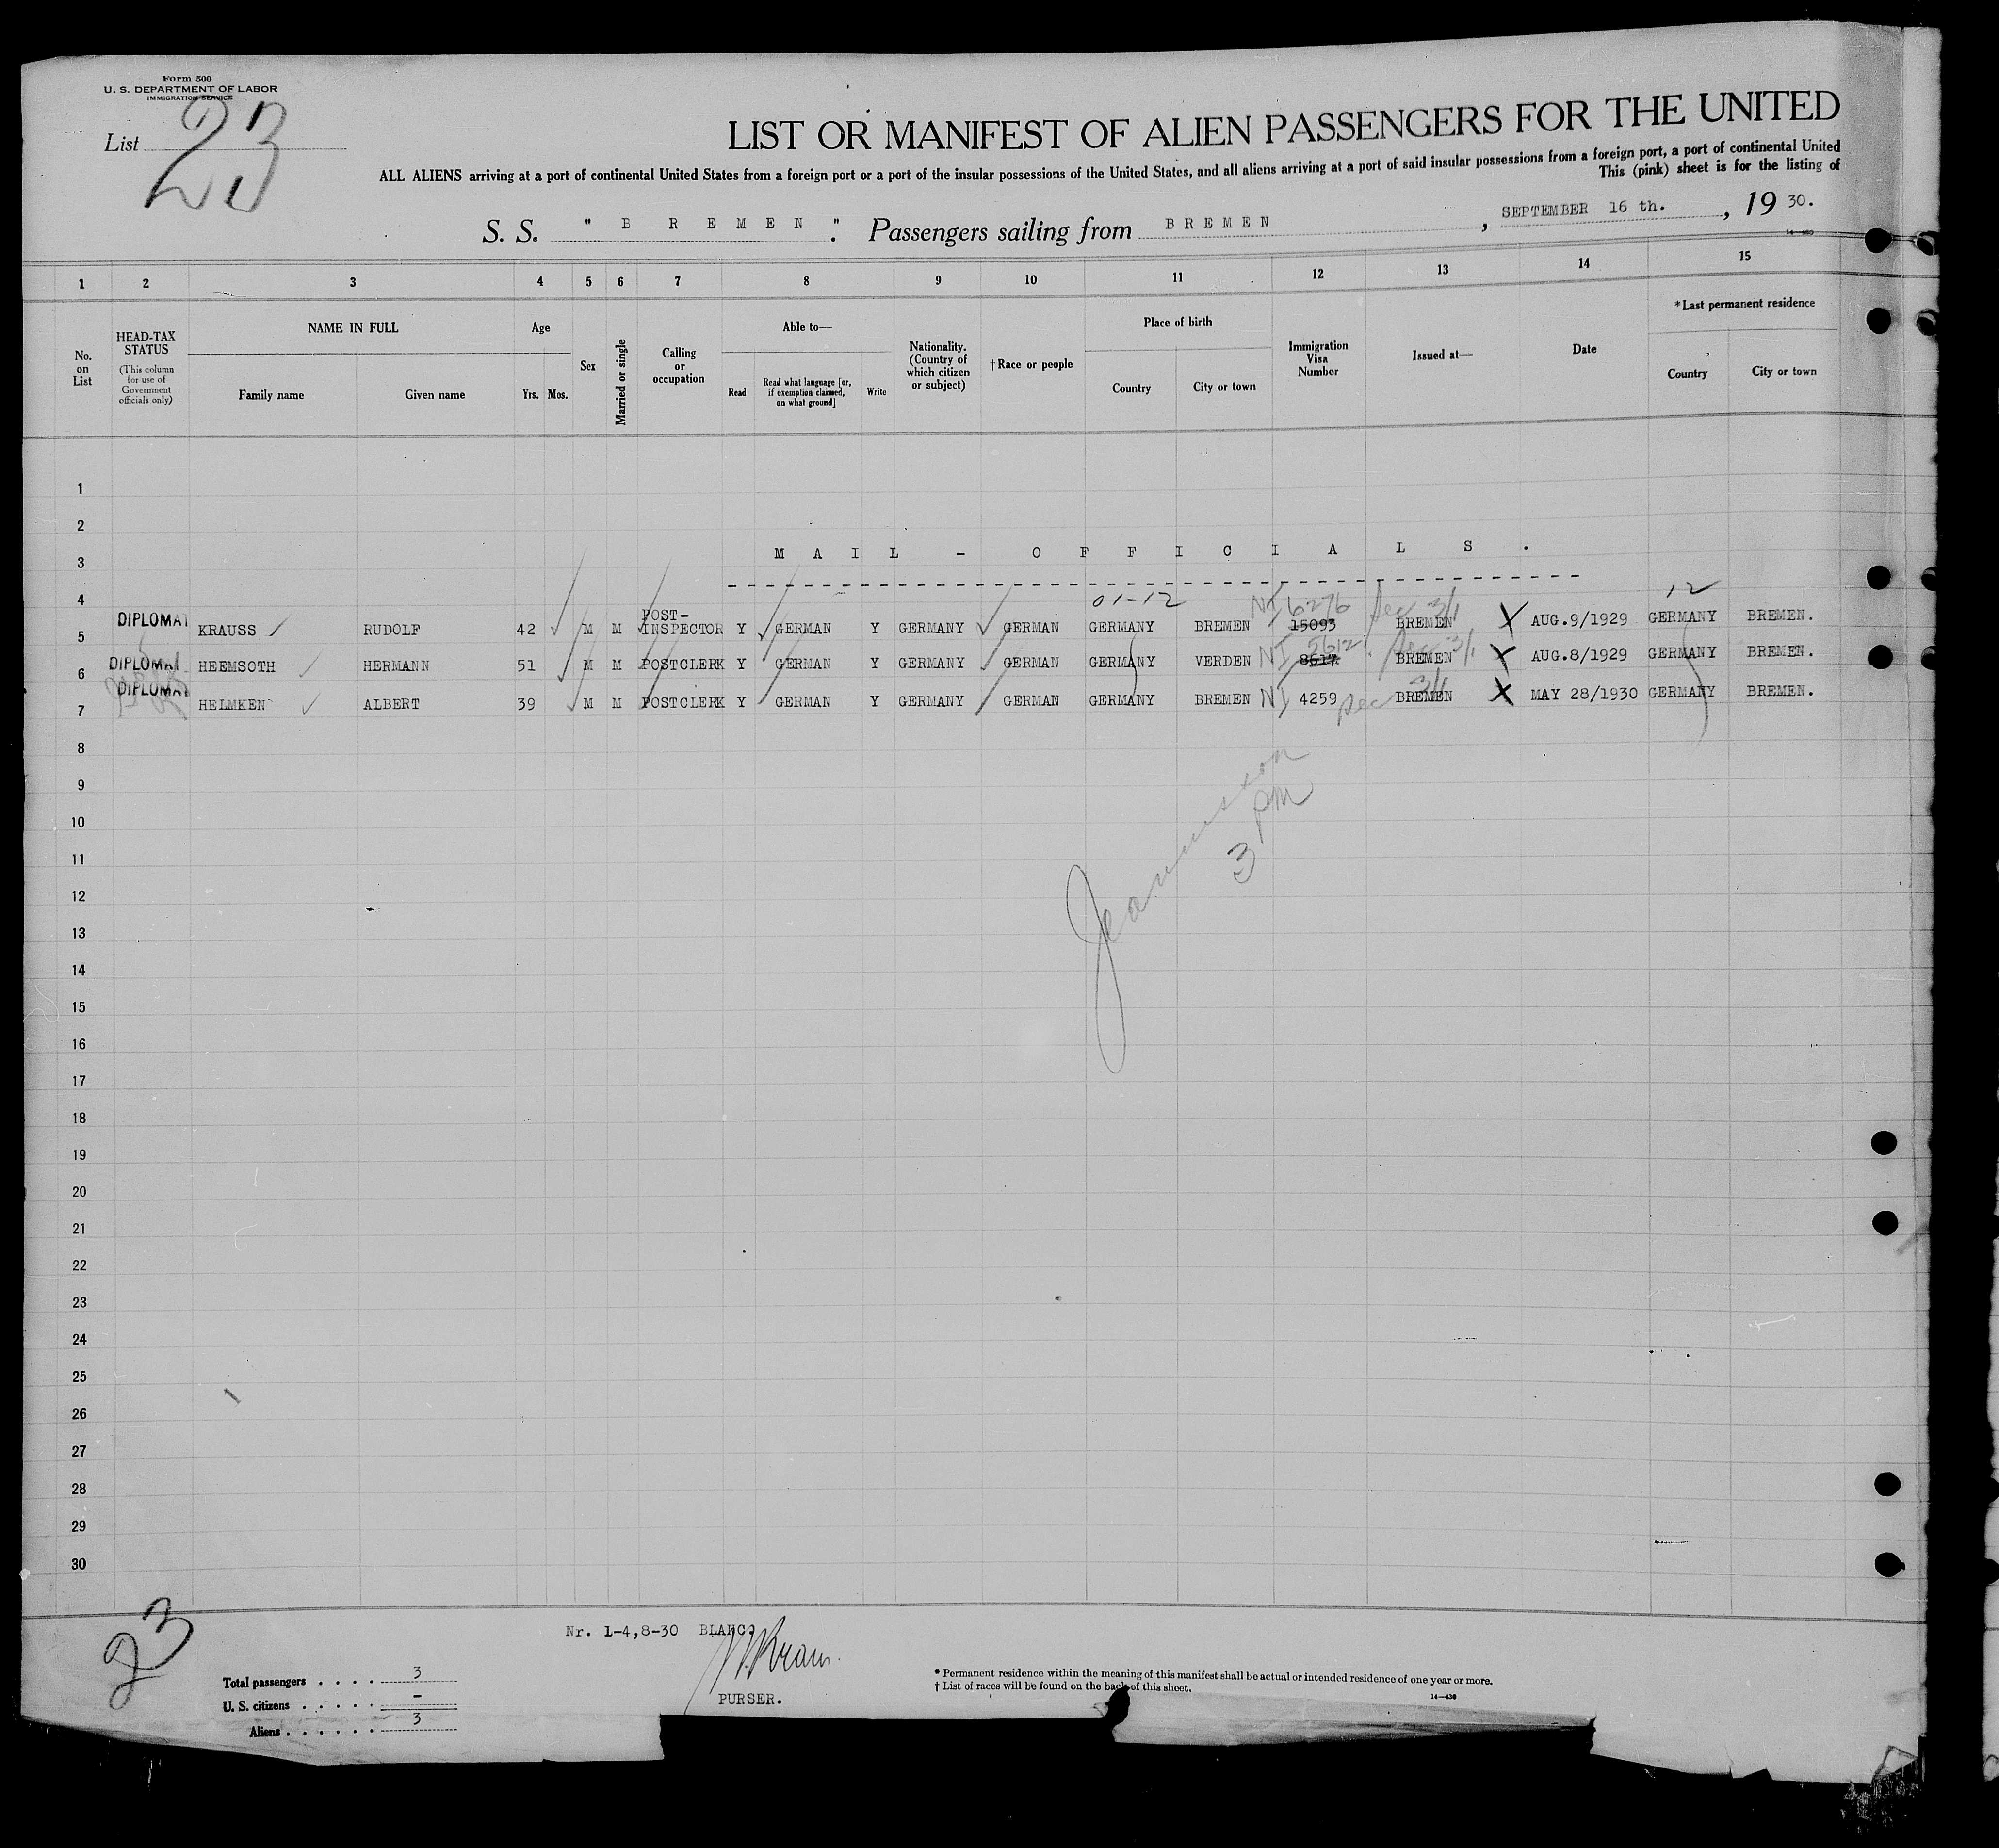 Form 500
U. S. DEPARTMENT OF LABOR
IMMIGRATION SERVICE
List 23
LIST OR MANIFEST OF ALIEN PASSENGERS FOR THE UNITED
ALL ALIENS arriving at a port of continental United States from a foreign port or a port of the insular possessions of the United States, and all aliens arriving at a port of said insular possessions from a foreign port, a port of continental United
This (pink) sheet is for the listing of
S. S. " B R E M E N ". Passengers sailing from B R E M E N , SEPTEMBER 16 th. , 19 30.
1 2 3 4 5 6 7 8 9 10 11 12 13 14 15
No. on List
HEAD-TAX STATUS
(This column for use of Government officials only)
NAME IN FULL
Family name Given name
Age
Yrs. Mos.
Sex
Married or single
Calling or occupation
Able to—
Read
Read what language [or, if exemption claimed, on what ground]
Write
Nationality. (Country of which citizen or subject)
†Race or people
Place of birth
Country City or town
Immigration Visa Number
Issued at—
Date
*Last permanent residence
Country City or town
1
2
M A I L - O F F I C I A L S .
3
4 01-12 12
5 DIPLOMAT KRAUSS RUDOLF 42 M M POST-INSPECTOR Y GERMAN Y GERMANY GERMAN GERMANY BREMEN NI 6276 15093 Sec 3/1 BREMEN X AUG.9/1929 GERMANY BREMEN.
6 DIPLOMAT HEEMSOTH HERMANN 51 M M POSTCLERK Y GERMAN Y GERMANY GERMAN GERMANY VERDEN NI 8617 Sec 3/1 BREMEN X AUG.8/1929 GERMANY BREMEN.
7 DIPLOMAT HELMKEN ALBERT 39 M M POSTCLERK Y GERMAN Y GERMANY GERMAN GERMANY BREMEN NI 4259 Sec 3/1 BREMEN X MAY 28/1930 GERMANY BREMEN.
8
9
3 PM
10
11
12
13
14
15
16
17
18
19
20
21
22
23
24
25
26
27
28
29
30
23
Nr. 1-4,8-30 BLANC.
PURSER.
Total passengers . . . . 3
U. S. citizens . . . . . -
Aliens . . . . . . 3
* Permanent residence within the meaning of this manifest shall be actual or intended residence of one year or more.
† List of races will be found on the back of this sheet.